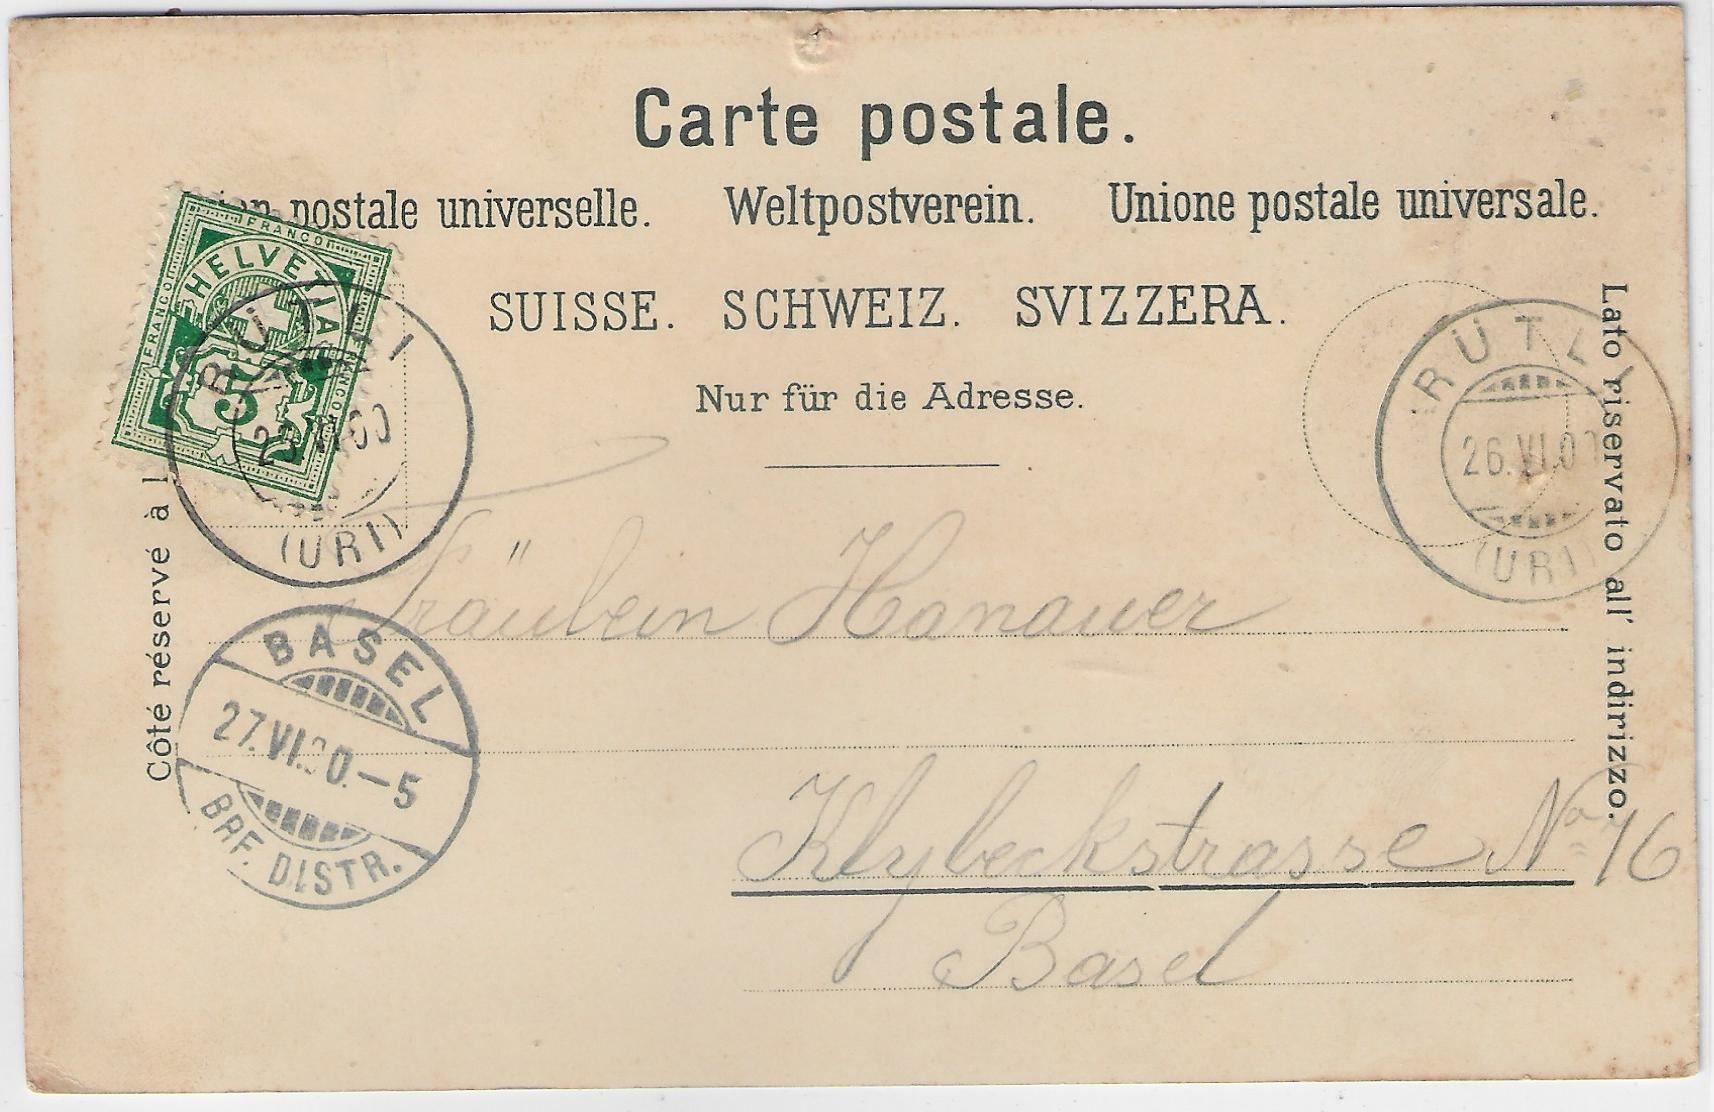 Carte postale.
postale universelle. Weltpostverein. Unione postale universale.
SUISSE. SCHWEIZ. SVIZZERA.
Nur für die Adresse.
FRANCO
FRANCO
HELVETIA
FRANCO
5
RÜTLI
(URI)
RÜTLI
26.VI.00
(URI)
Côté réservé à
Lato riservato all' indirizzo.
Fräulein Hanauer
BASEL
27.VI.00.–5
BRF. DISTR.
Klybeckstrasse No 76
Basel